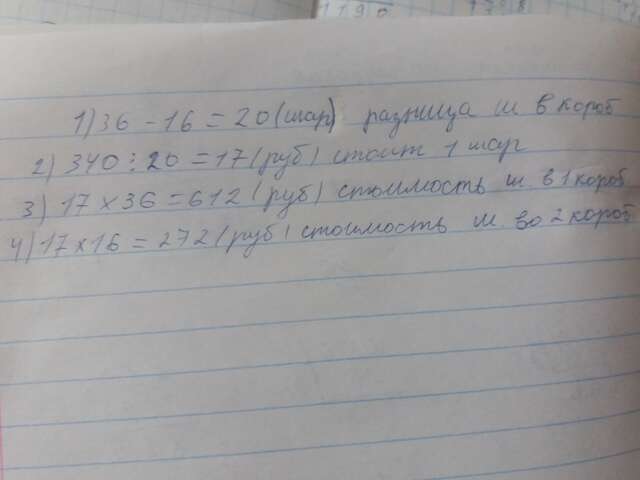 1) 36 - 16 = 20 (шар) разница ш в короб
2) 340 : 20 = 17 (руб) стоит 1 шар
3) 17 x 36 = 612 (руб) стоимость ш в 1 короб
4) 17 x 16 = 272 (руб) стоимость ш во 2 короб